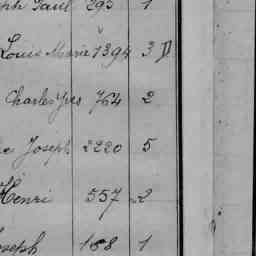 ph Paul 295 1
Louis Marie 1394 3
Charles Yves 764 2
Joseph 2220 5
Henri 557 2
oseph 168 1